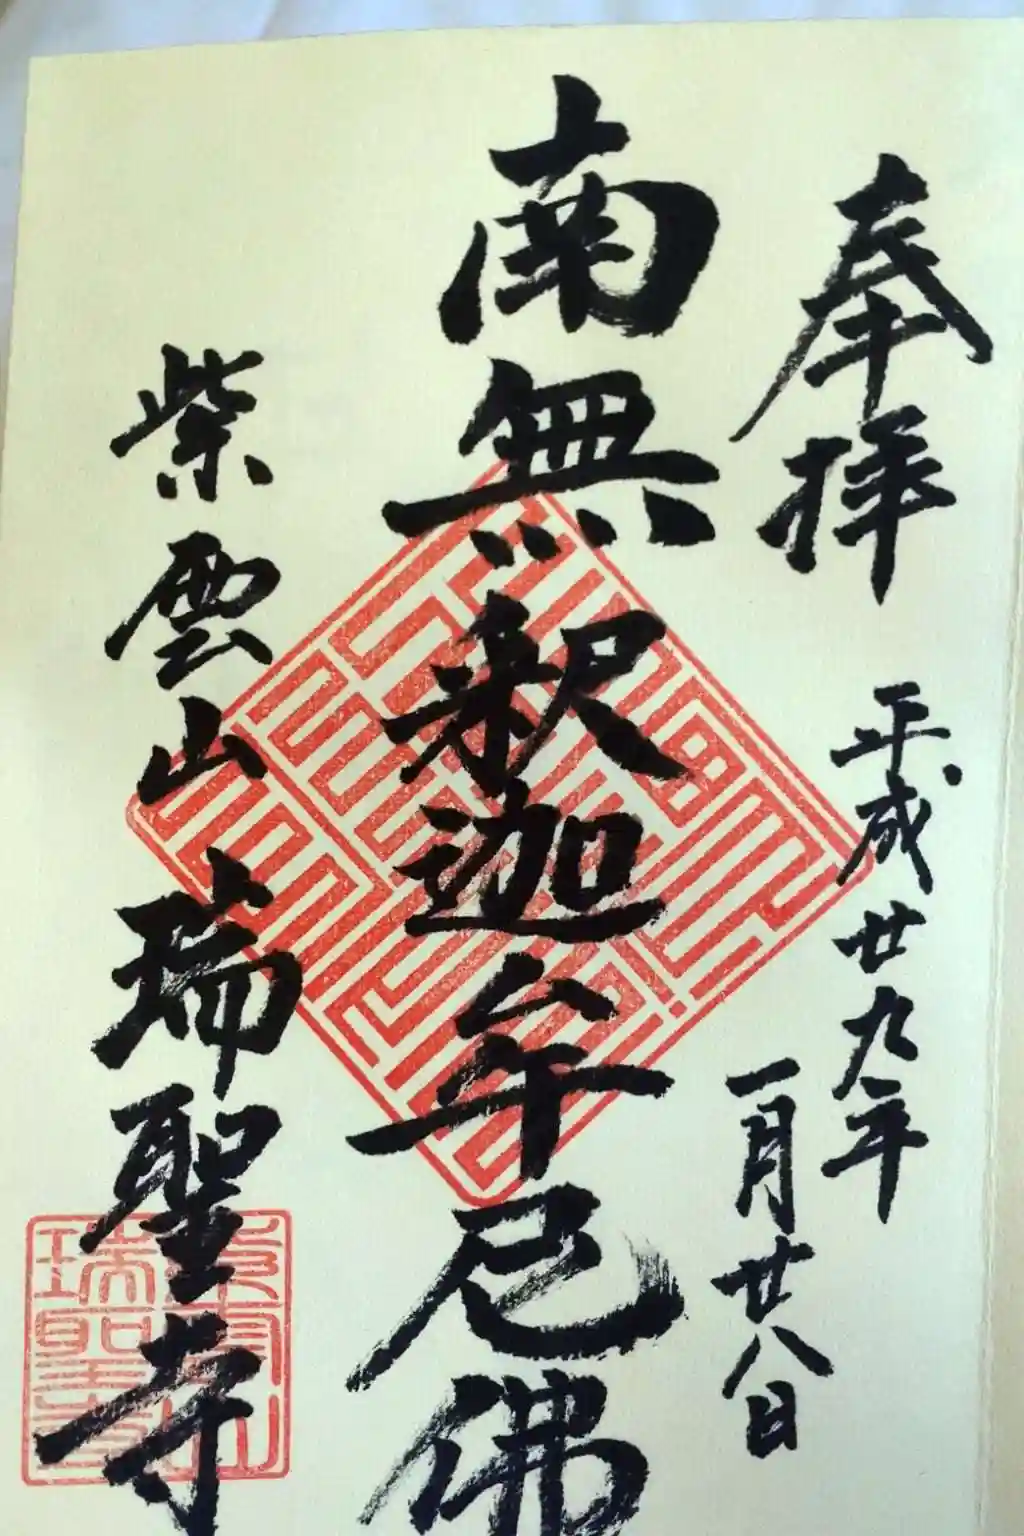 奉拝
平成廿九年
一月廿八日
南無釈迦牟尼佛
紫雲山瑞聖寺